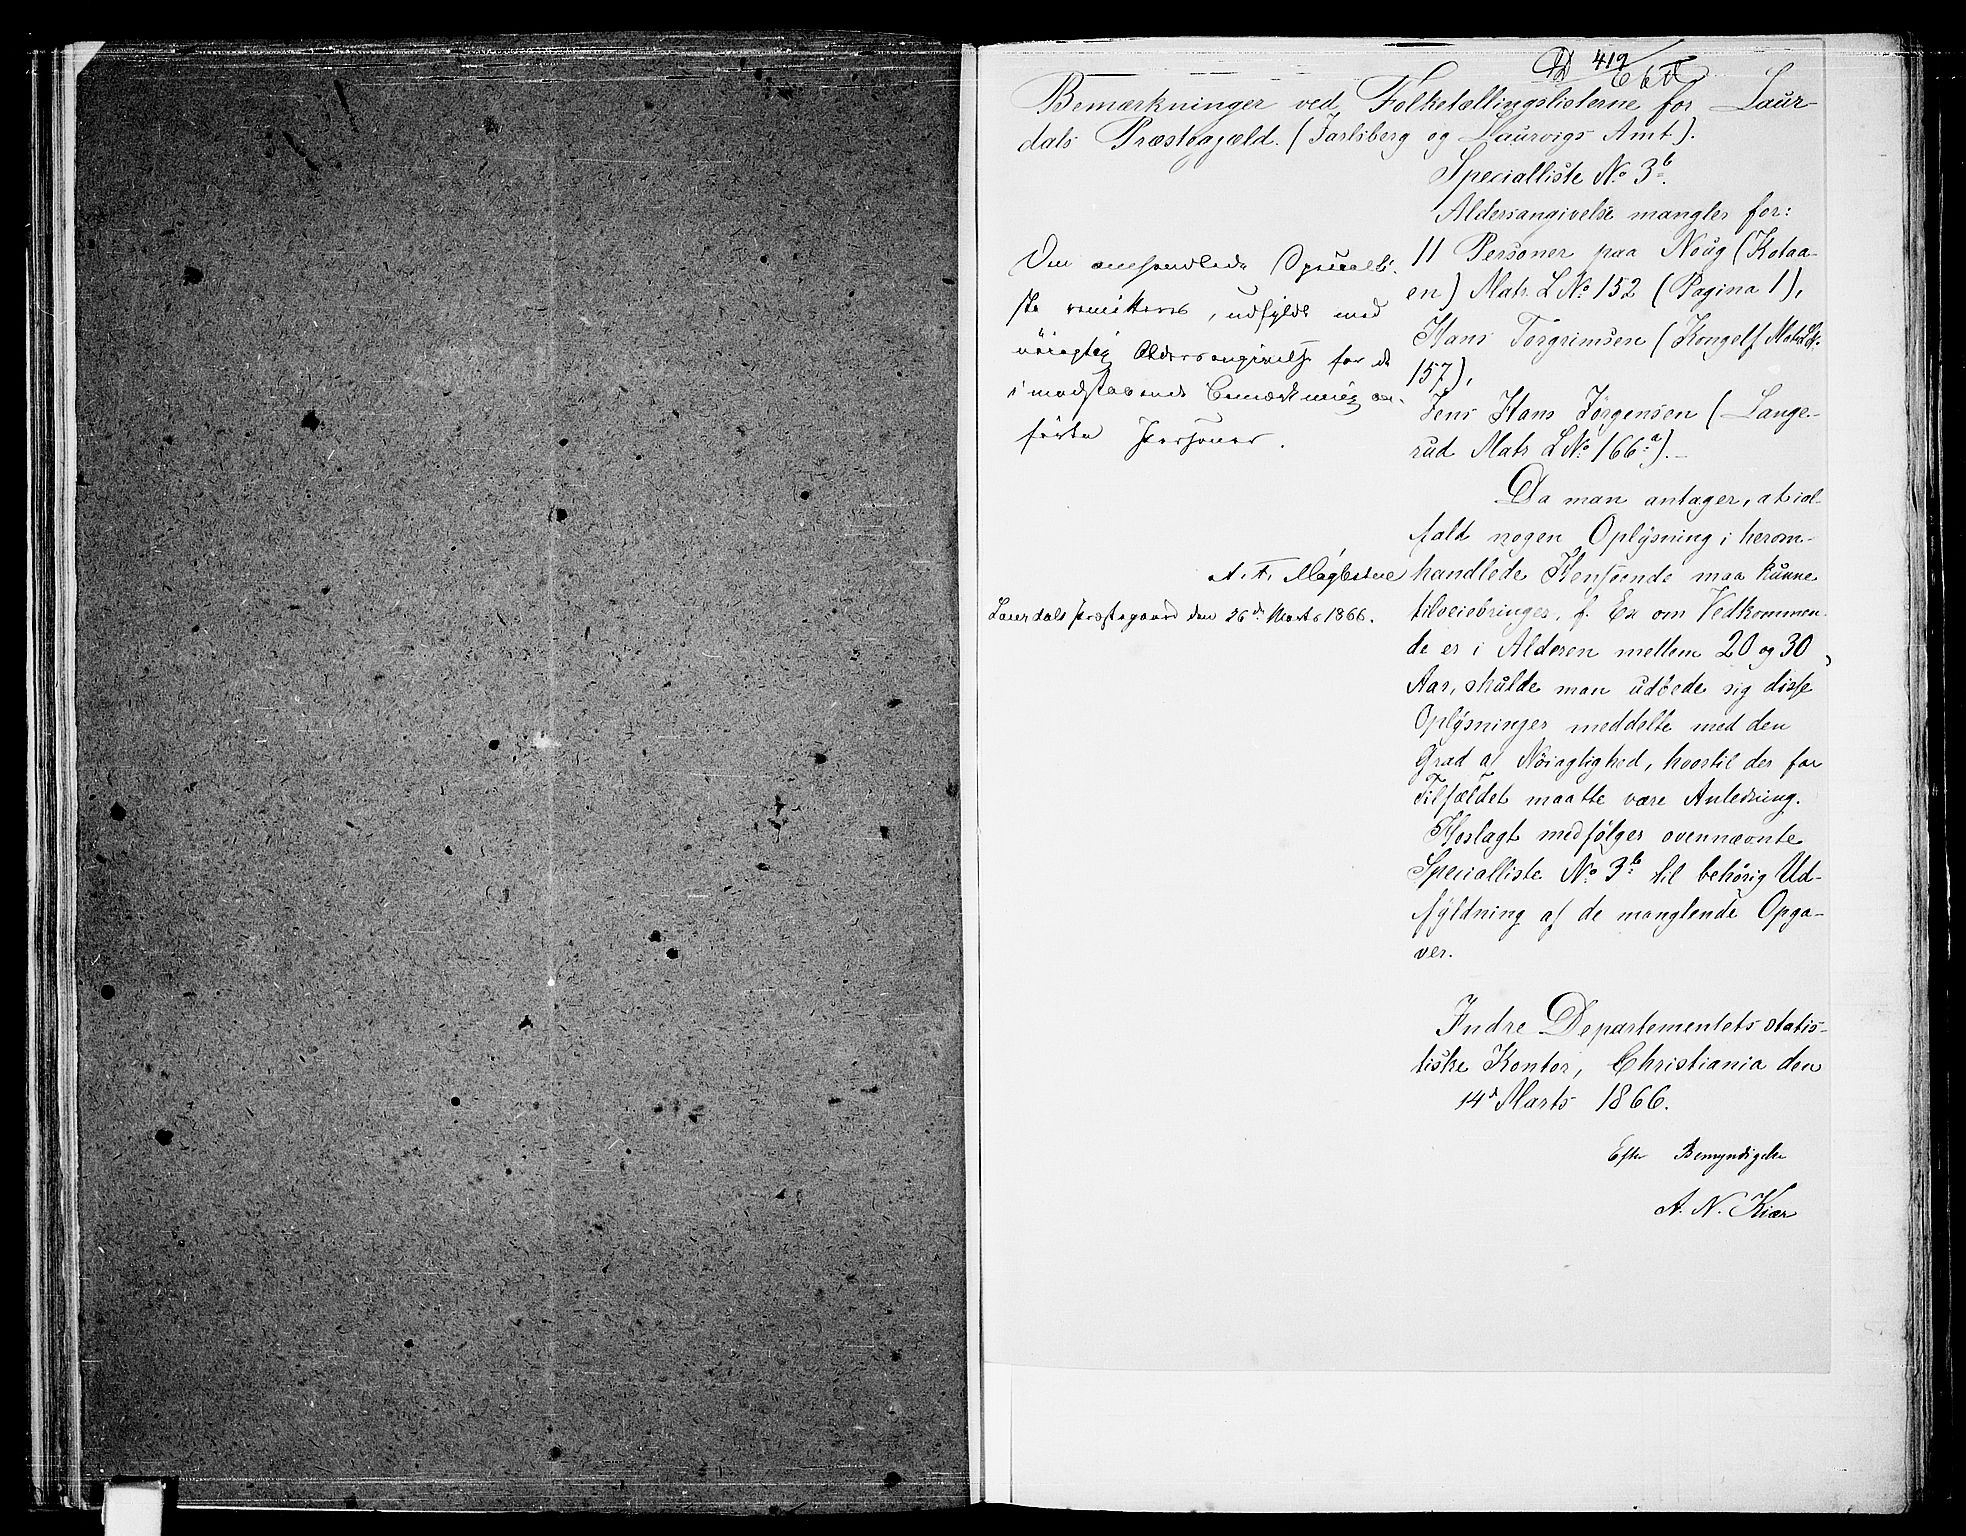 D 419/66
Bemærkninger ved Folketællingslisterne for Laur-
dals Præstegjæld. (Jarlsberg og Laurvigs Amt).
Specialliste No 3b.
Aldersangivelse mangler for:
11 Personer paa Noug (Kolaa-
en) Matr. L No 152 (Pagina 1),
Hans Torgrimsen (Kongelf Matr. L N.
157),
Jens Hans Jørgensen (Lange-
rud Matr L No 166a).-
Da man antager, at ial-
fald nogen Oplysning i herom-
handlede Henseende maa kunne
tilveiebringes, f. Ex om Vedkommen-
de er i Alderen mellem 20 og 30
Aar, skulde man udbede sig disse
Oplysninger meddelte med den
Grad af Nøiagtighed, hvortil der for
Tilfældet maatte være Anledning.
Hoslagt medfølger ovennævnte
Specialliste No 3b til behørig Ud-
fyldning af de manglende Opga-
ver.
Indre Departementets statis-
tiske Kontor, Christiania den
14d Marts 1866.
Efter Bemyndigelse
A. N. Kiær
Den omhandlede Speciali-
ste remitteres, udfyldt med
nøiagtig Aldersangivelse for de
i modstaaende Bemærkning an-
førte Personer.
A. F. Magelssen
Laurdals Præstegaard den 26de Marts 1866.